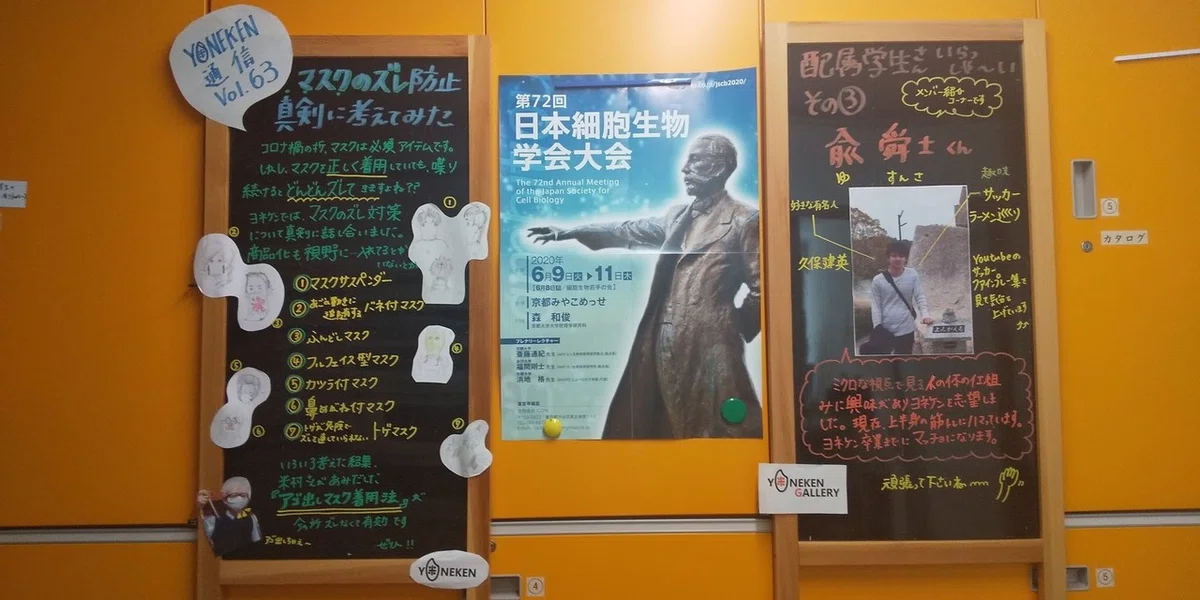 YONEKEN
通信
Vol.63
マスクのズレ防止
真剣に考えてみた
コロナ禍の折、マスクは必須アイテムです。
しかし、マスクを正しく着用していても、喋り
続けるとどんどんズレてきますよね??
ヨネケンでは、マスクのズレ対策
について真剣に話し合いました。
商品化も視野に入れてるとか
いないとか
①マスクサスペンダー
②あごの動きに
追随する バネ付マスク
③ふんどしマスク
④フルフェイス型マスク
⑤カツラ付マスク
⑥鼻めがね付マスク
⑦トゲが危険で
ズレて這っていられない、トゲマスク
いろいろ考えた結果、
米村さんがあみだした、
『アゴ出しマスク着用法』が
今の所ズレなくて有効です
ぜひ!!
アゴ出しちゃえ〜
YONEKEN
jscb2020/
第72回
日本細胞生物
学会大会
The 72nd Annual Meeting
of the Japan Society for
Cell Biology
2020年
6月9日火▶11日木
京都みやこめっせ
森 和俊
プレナリーレクチャー
斎藤通紀先生
福間剛士先生
浜地 格先生
配属学生さん いらっしゃ〜い
その③
メンバー紹介
コーナーです
兪 舜士くん
ゆ すんさ
好きな有名人
久保建英
趣味
サッカー
ラーメン巡り
Youtubeの
サッカー
ファインプレー集を
見て気分を
上げています
ミクロな視点で見る人の体の仕組
みに興味がありヨネケンを志望しま
した。現在、上半身の筋トレにハマっています。
ヨネケン卒業までにマッチョになります。
頑張って下さいね
YONEKEN
GALLERY
カタログ
⑤
④
⑤